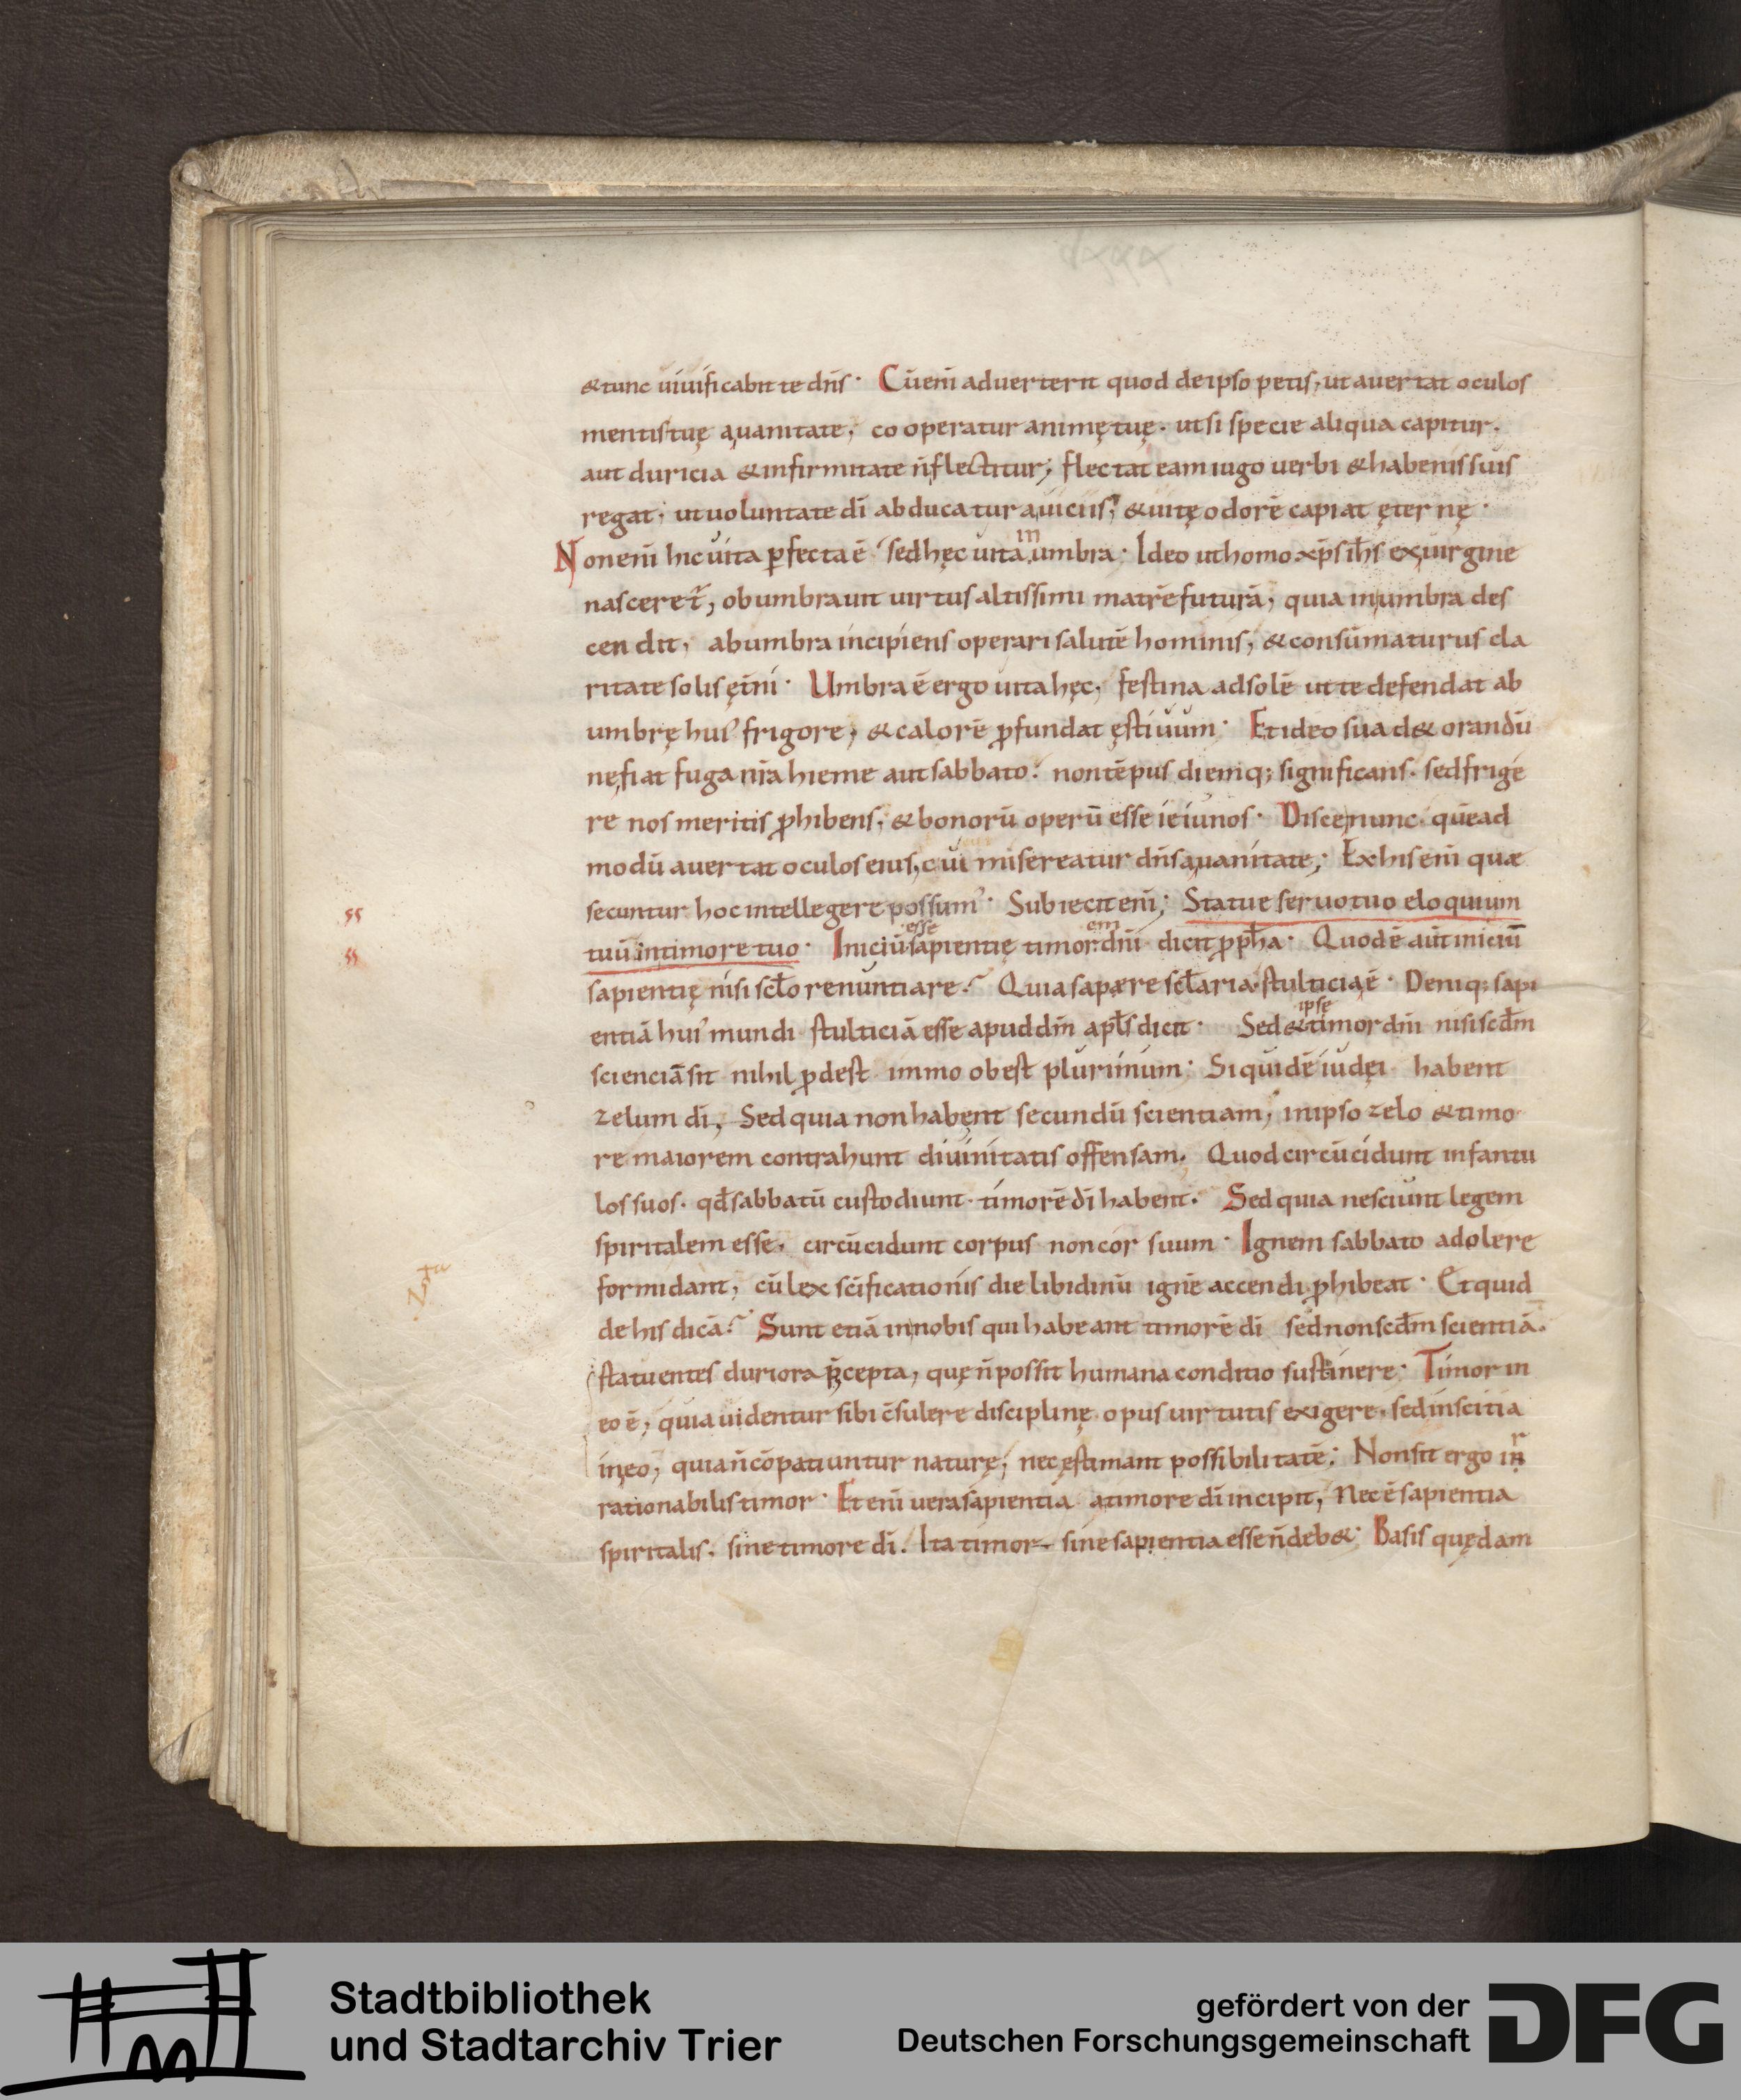 &tunc uiuificabit te dn̄s· Cū eni̅ aduerterit quod de ipso petis, ut auertat oculos
mentis tuę a uanitate, co operatur animę tuę. ut si specie aliqua capitur.
aut duricia & infirmitate n̄ flectitur; flectat eam iugo uerbi & habenis suis
regat, ut uoluntate dī abducatur a uiciis, & uitę odorē capiat ęternę·
Non eni̅ hic uita ꝑfecta ē sed hęc uita in umbra· Ideo ut homo xp̄s ih̄s ex uirgine
nasceret̄, obumbrauit uirtus altissimi matrē futurā, quia in umbra des
cendit, ab umbra incipiens operari salutē hominis, & consūmaturus cla
ritate solis ęt̄ni· Umbra ē ergo uita hęc, festina ad solē ut te defendat ab
umbrę huiꝰ frigore, & calorē ꝓfundat ęstiuum· Et ideo suad& orandū
ne fiat fuga n̄ra hieme aut sabbato: non tēpus diemq; significans. sed frige
re nos meritis ꝓhibens, & bonorū operū esse ieiunos· Disce nunc quēad
modū auertat oculos eius, cui misereatur dn̄s a uanitate; Ex his eni̅ quæ
secuntur hoc intellegere possumꝰ· Subiecit eni̅; Statue seruo tuo eloquium
ss
tuū in timore tuo· Iniciū esse sapientię timorem dn̄i dicit ꝓph̄a· Quod ē aut̄ iniciū
ss
sapientię nisi sc̄lo renuntiare? Quia sapere sc̄laria stulticia ē· Deniq; sapi
entiā huiꝰ mundi stulticiā esse apud dm̄ apl̄s dicit· Sed & ipse timor dn̄i nisi scd̄m
scienciā sit nihil ꝓdest immo obest plurimum· Siquidē iudęi habent
zelum dī, Sed quia non habent secundū scientiam, in ipso zelo & timo
re maiorem contrahunt diuinitatis offensam. Quod circūcidunt infantu
los suos. qd̄ sabbatū custodiunt timorē dī habent. Sed quia nesciunt legem
spiritalem esse, circūcidunt corpus non cor suum· Ignem sabbato adolere
formidant, cū lex sc̄ificationis die libidinū ignē accendi ꝓhibeat· Et quid
de his dicā? Sunt etiā in nobis qui habeant timorē dī sed non scd̄m scientiā.
statuentes duriora p̄cepta, quę n̄ possit humana conditio sustinere· Timor in
eo ē, quia uidentur sibi c̄sulere disciplinę opus uirtutis exigere, sed inscitia
in eo, quia n̄ cōpatiuntur naturę, nec ęstimant possibilitatē; Non sit ergo ir
rationabilis timor· Et eni̅ uera sapientia a timore dī incipit, Nec ē sapientia
spiritalis, sine timore dī. Ita timor sine sapientia esse n̄ deb&· Basis quędam
Stadtbibliothek
und Stadtarchiv Trier
gefördert von der
Deutschen Forschungsgemeinschaft
DFG